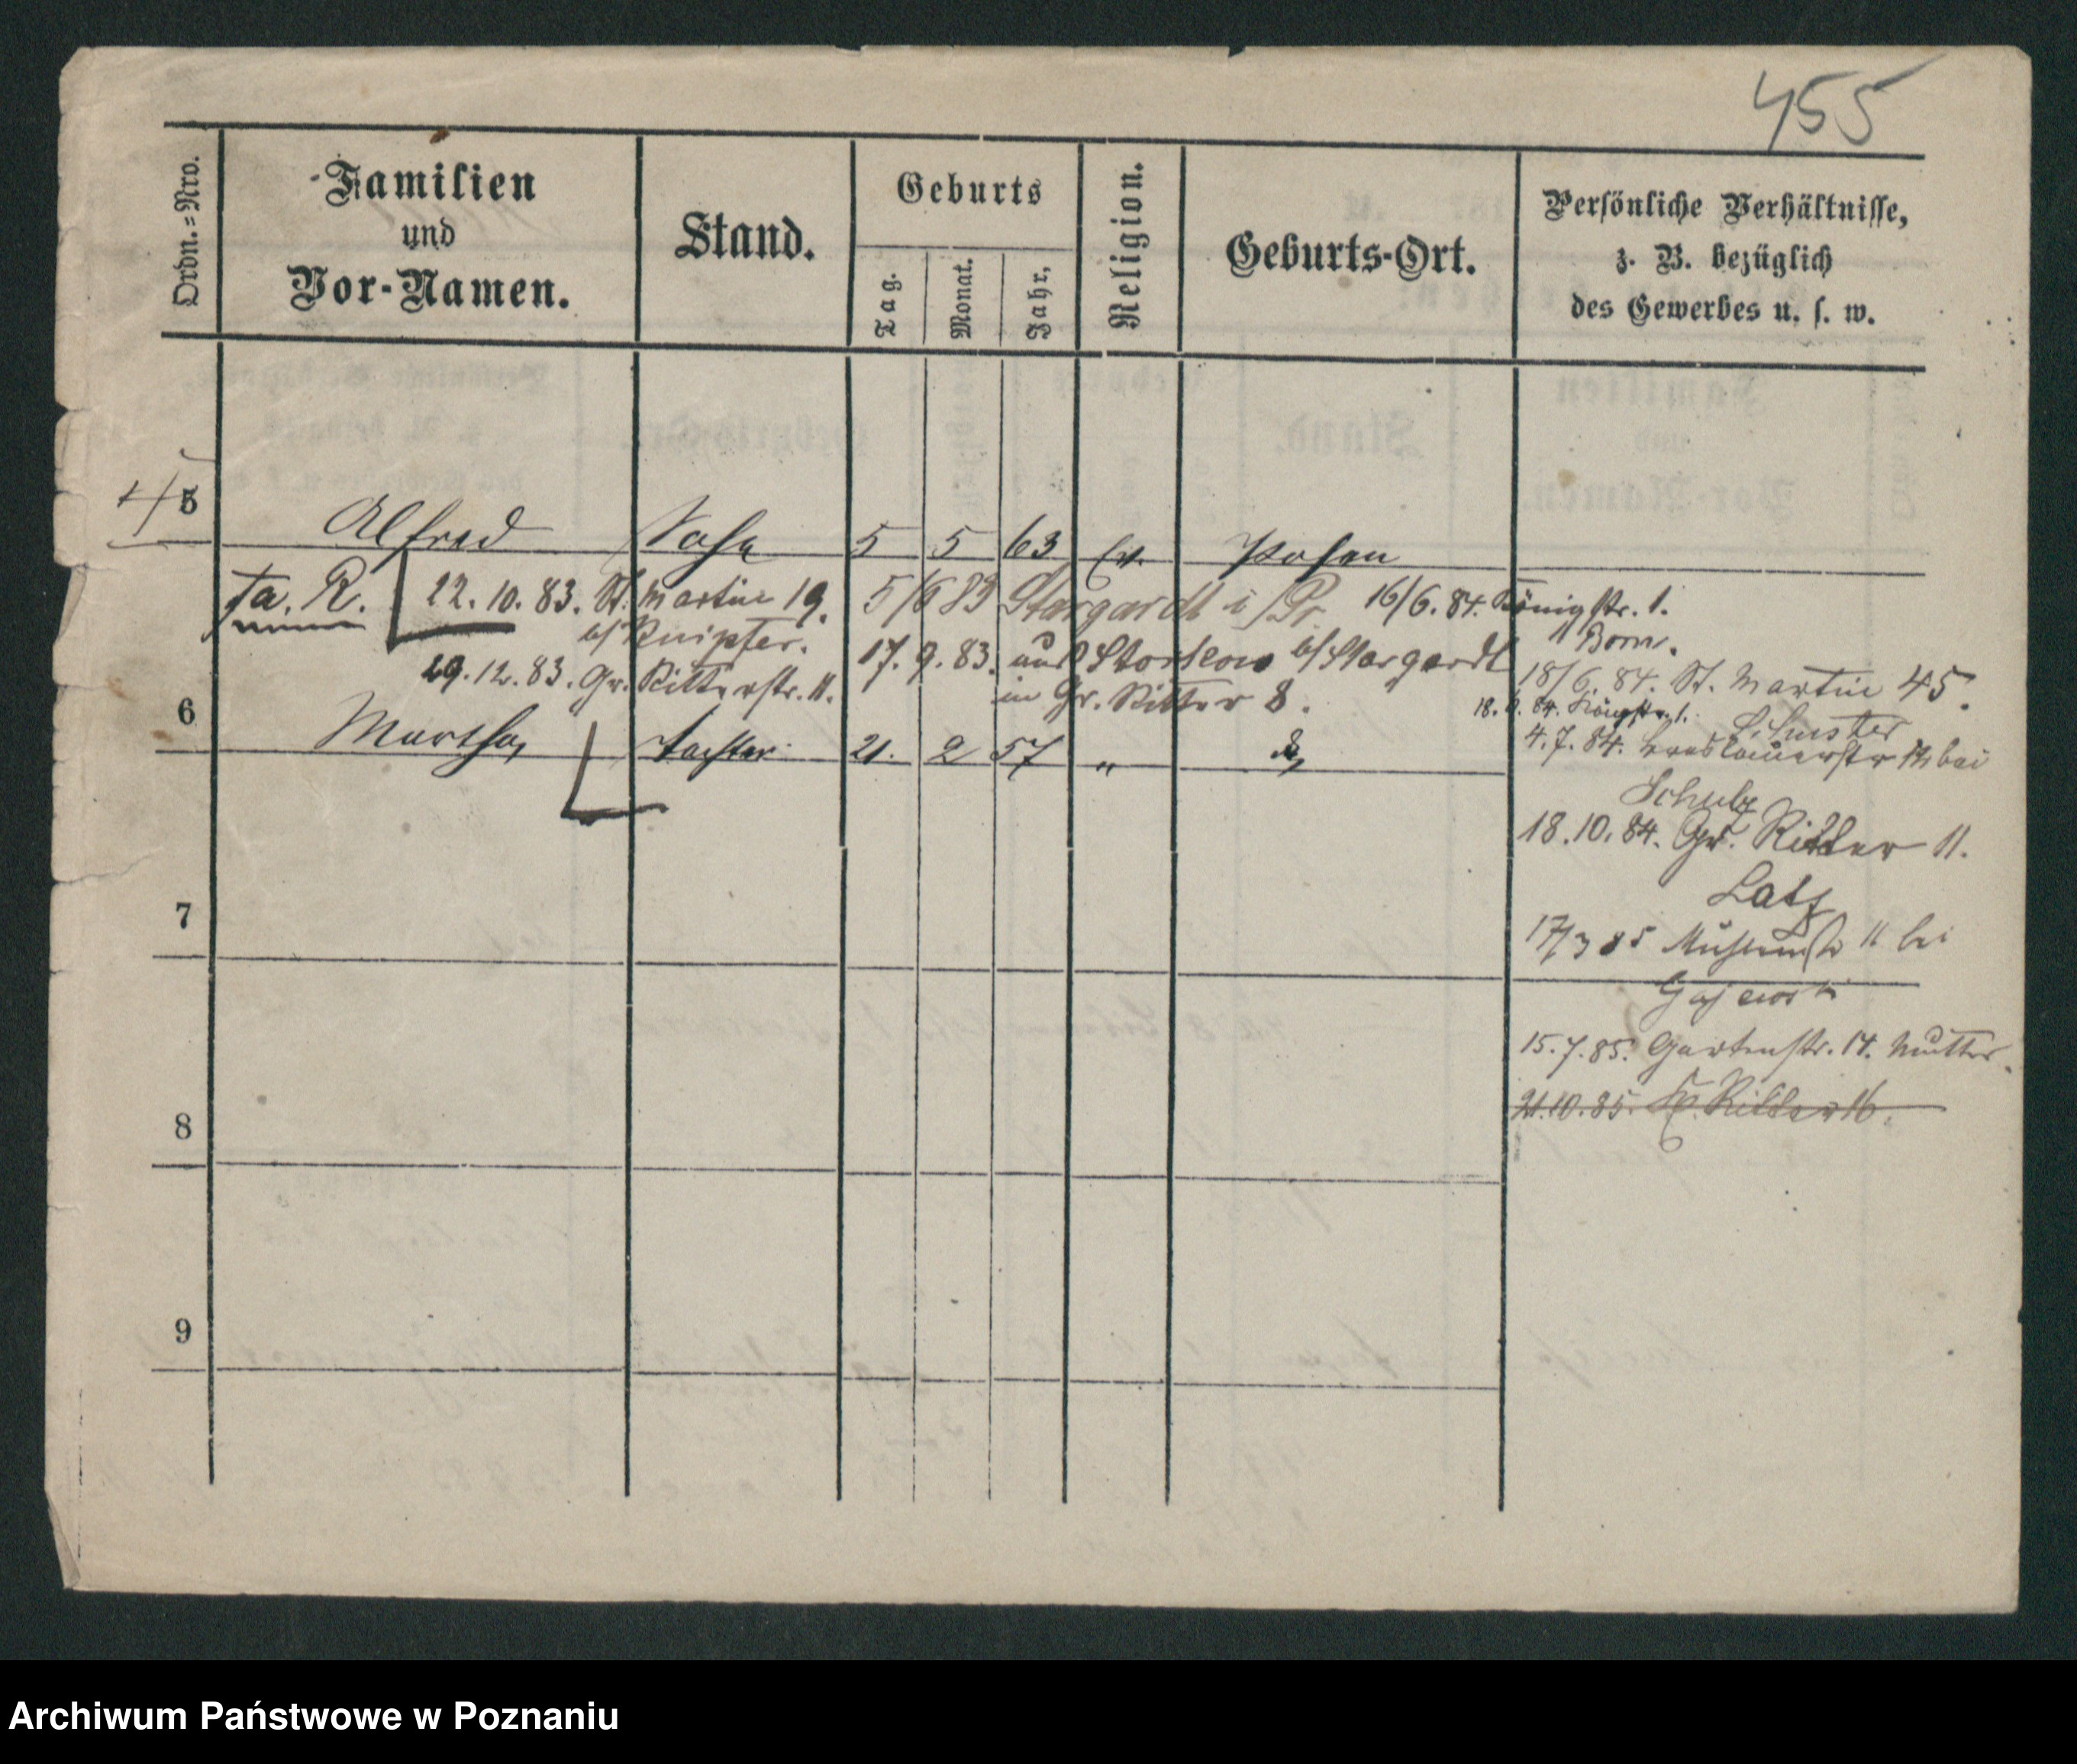 455
Ordn.=Nro.
Familien
und
Vor-Namen.
Stand.
Geburts
Tag.
Monat.
Jahr.
Religion.
Geburts-Ort.
Persönliche Verhältnisse,
z. B. bezüglich
des Gewerbes u. s. w.
5
Alfred Sohn 5 5 63 Ev. Posen
22. 10. 83. St. Martin 19.
b/ Knipfer.
29. 12. 83. Gr. Ritterstr. 11.
5/6 83 Stargardt i/Pr.
17. 9. 83. aus b/ Stargardt
in Gr. Ritter 8.
16/6. 84. Königstr. 1.
Born.
18/6. 84. St. Martin 45.
18. 6. 84. Königstr. 1.
Schuster
4. 7. 84. Breslauerstr bei
Schulz
18. 10. 84. Gr. Ritter 11.
Latz
17/3 85 Mühlenstr 11 bei
Gajewski
15. 7. 85. Gartenstr. 14. Mutter.
21. 10. 85. Ritter 16.
6
Martha Tochter 21. 2 57 "
7
8
9
Archiwum Państwowe w Poznaniu